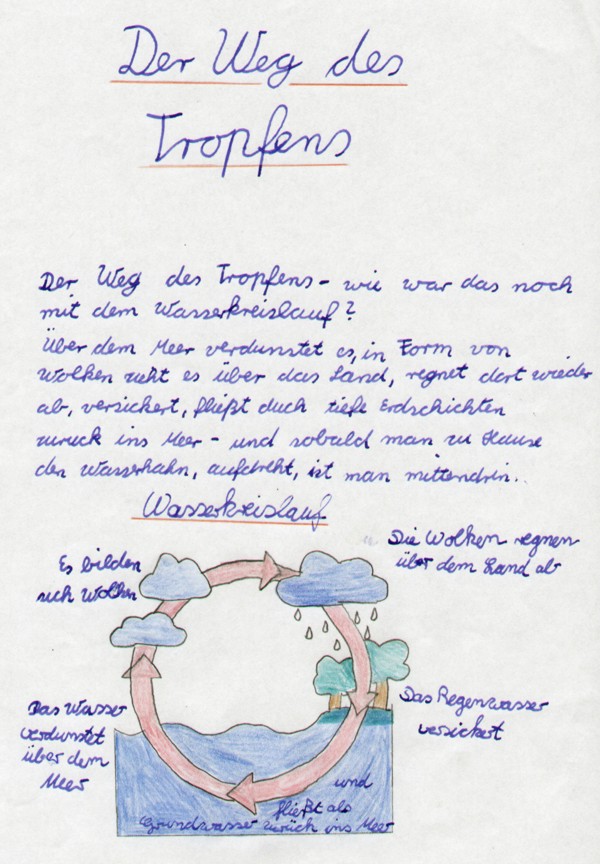 Der Weg des
Tropfens
Der Weg des Tropfens - wie war das noch
mit dem Wasserkreislauf?
Über dem Meer verdunstet es, in Form von
Wolken zieht es über das Land, regnet dort wieder
ab, versickert, fließt duch tiefe Erdschichten
zurück ins Meer - und sobald man zu Hause
den Wasserhahn, aufdreht, ist man mittendrin..
Wasserkreislauf
Die Wolken regnen
über dem Land ab
Es bilden
sich Wolken
Das Regenwasser
versickert
Das Wasser
verdunstet
über dem
Meer
und
fließt als
Grundwasser zurück ins Meer